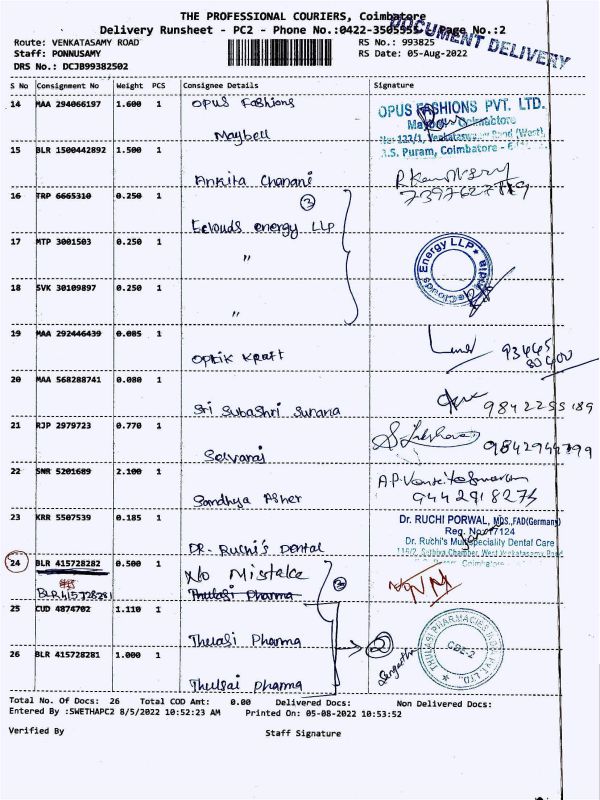 THE PROFESSIONAL COURIERS, Coimbatore
Delivery Runsheet - PC2 - Phone No.:0422-3505555 Page No.:2
DOCUMENT DELIVERY
Route: VENKATASAMY ROAD RS No.: 993825
Staff: PONNUSAMY RS Date: 05-Aug-2022
DRS No.: DCJB99382502
S No Consignment No Weight PCS Consignee Details Signature
14 MAA 294066197 1.600 1 Opus Fashions
Maybell
OPUS FASHIONS PVT. LTD.
Coimbatore
R.S. Puram, Coimbatore -
15 BLR 1500442892 1.500 1
Ankita Chanani
16 TRP 6665310 0.250 1
Eclouds energy LLP
17 MTP 3001503 0.250 1
"
Energy LLP
18 SVK 30109897 0.250 1
"
19 MAA 292446439 0.085 1
Optik Kraft
93445
80400
20 MAA 568288741 0.080 1
Sri Subashri Surana
9842255189
21 RJP 2979723 0.770 1
Selvaraj
9842944799
22 SNR 5201689 2.100 1
Sandhya Asher
9442918274
23 KRR 5507539 0.185 1
DR. Ruchi's Dental
Dr. RUCHI PORWAL, MDS.,FAD(Germany)
Reg. No. 7124
Dr. Ruchi's Multispeciality Dental Care
24 BLR 415728282 0.500 1
BLR 415728281
Mistake
Thulasi Pharma
NM
25 CUD 4874702 1.110 1
Thulasi Pharma
2
THULASI PHARMACIES INDIA PVT. LTD.
CBE-2
26 BLR 415728281 1.000 1
Thulsai pharma
Total No. Of Docs: 26 Total COD Amt: 0.00 Delivered Docs: Non Delivered Docs:
Entered By :SWETHAPC2 8/5/2022 10:52:23 AM Printed On: 05-08-2022 10:53:52
Verified By Staff Signature